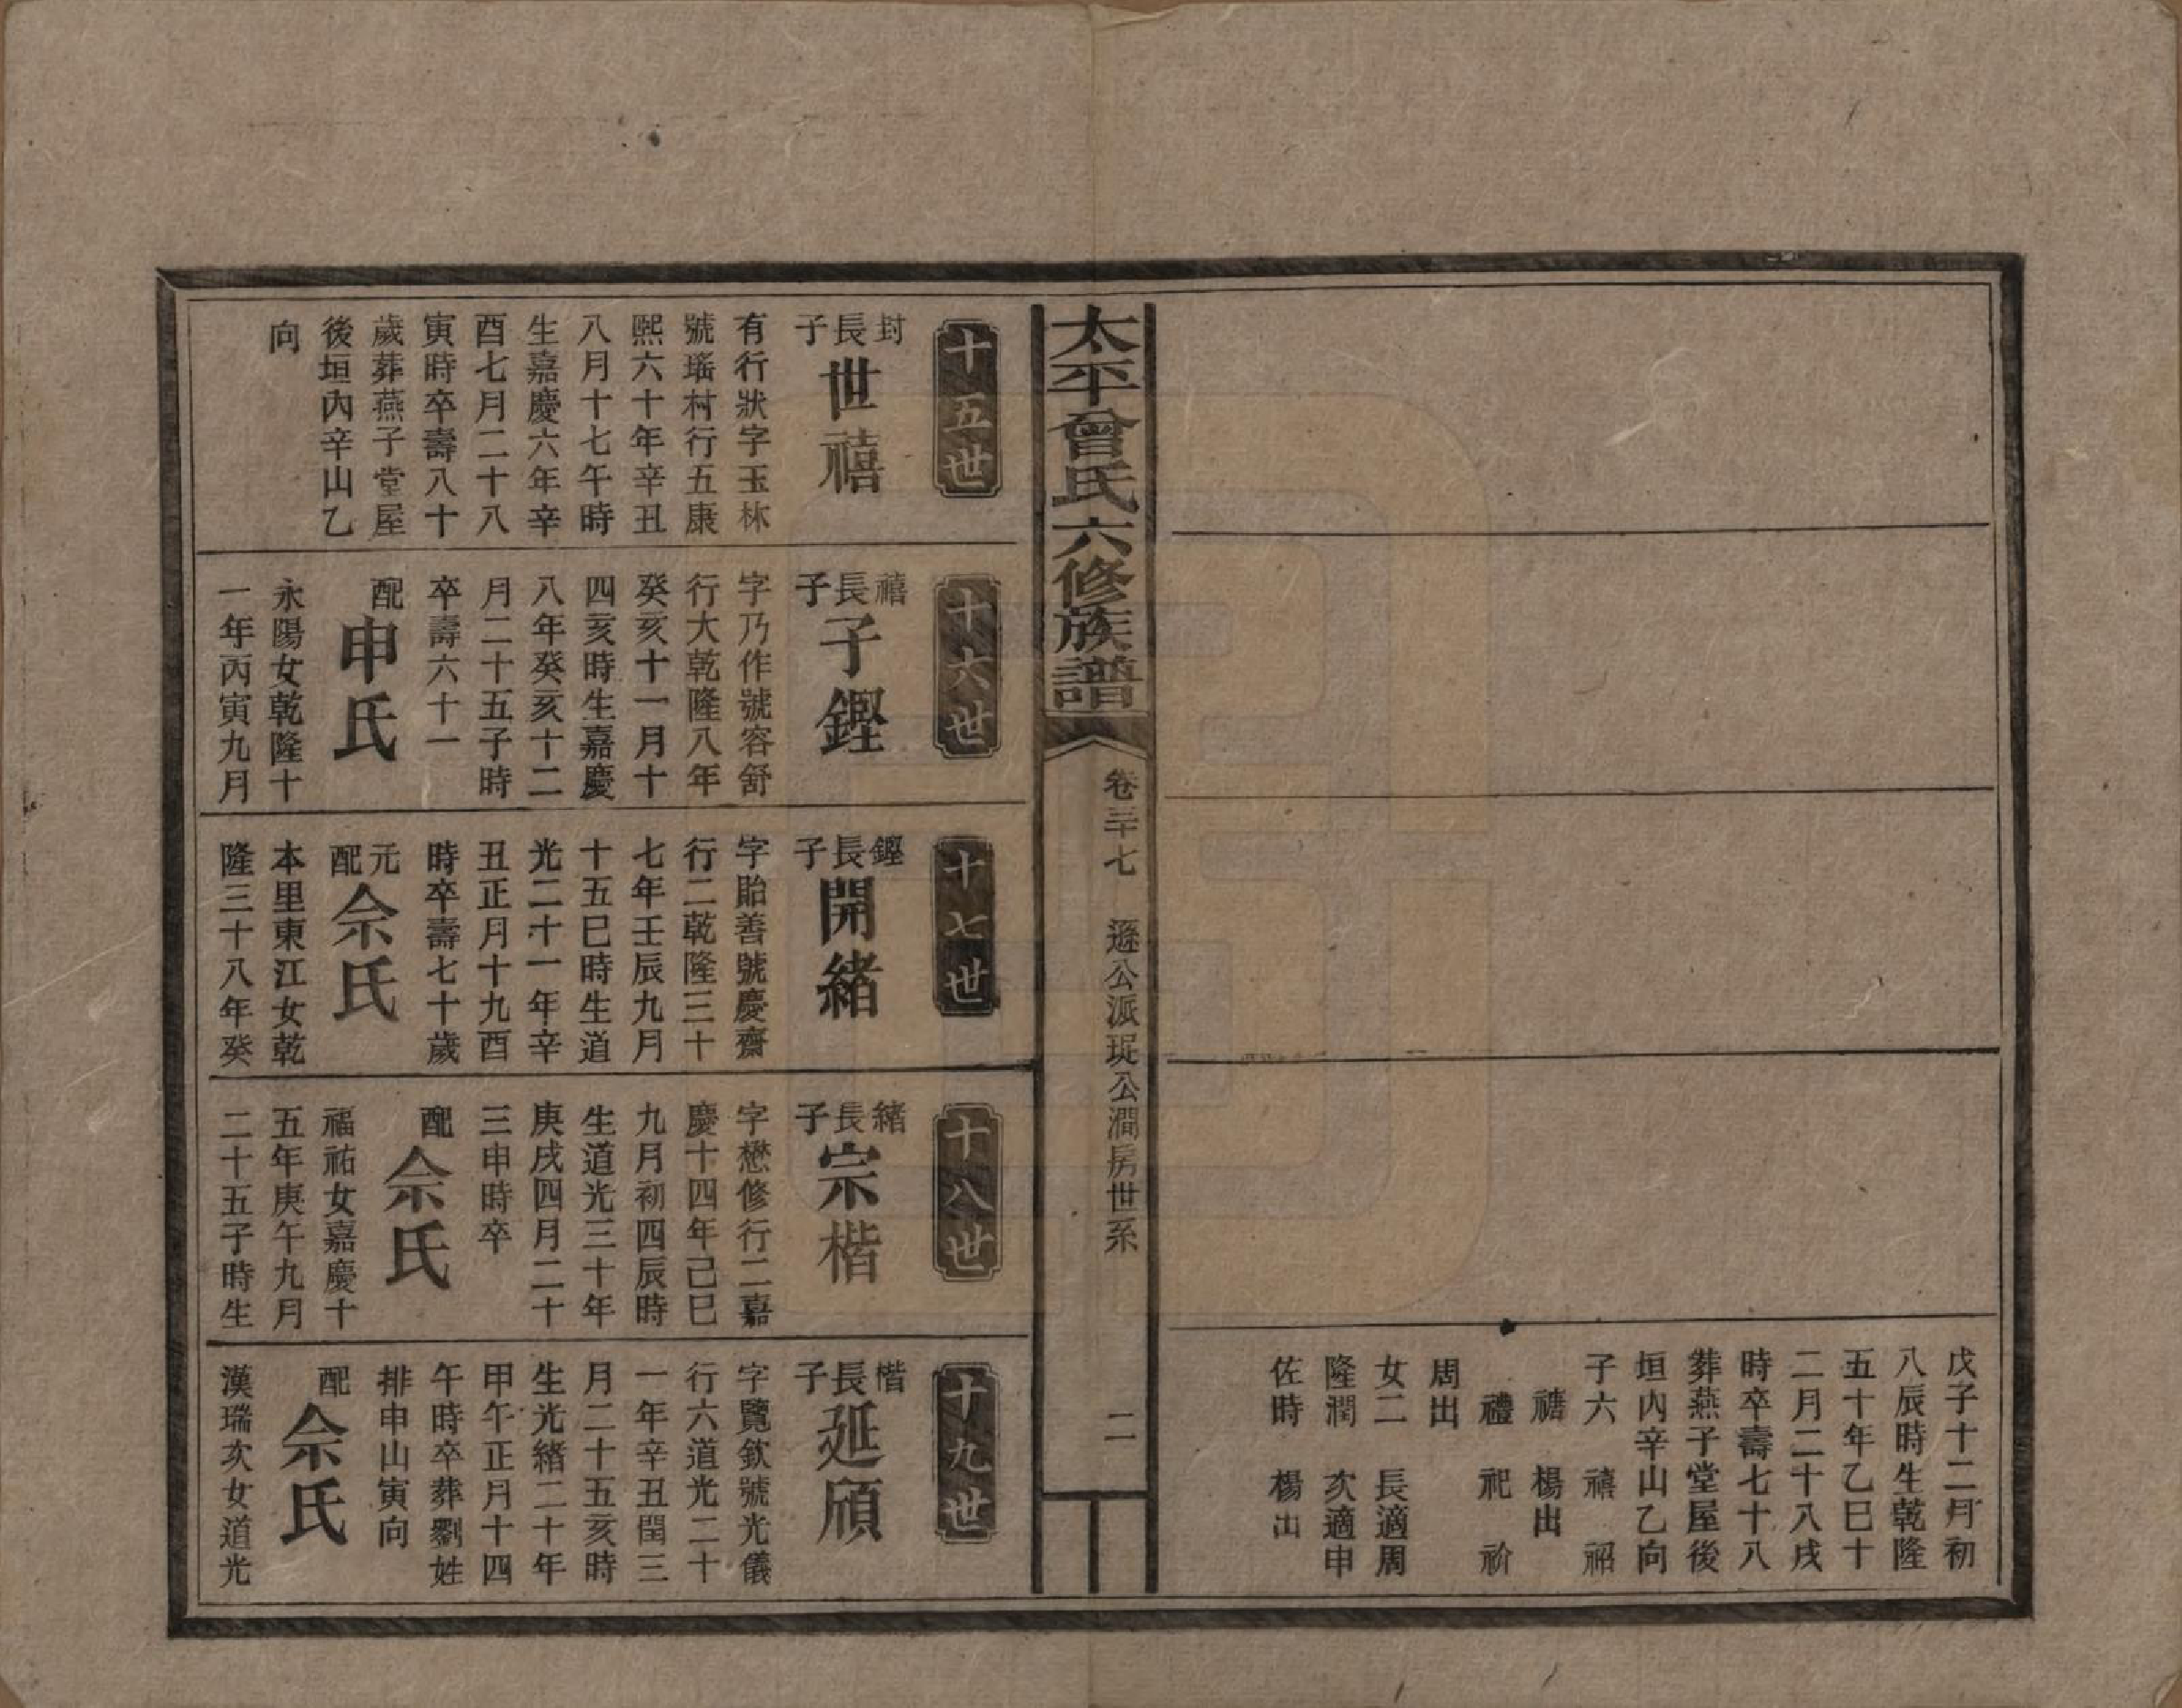 戊子十二月初
八辰時生乾隆
五十年乙巳十
二月二十八戌
時卒壽七十八
葬燕子堂屋後
垣內辛山乙向
子六 禧 祒
禟 楊出
禮 祀 祄
周出
女二 長適周
隆潤 次適申
佐時 楊出
太平曾氏六修族譜
卷三十七 遜公派珽公澗房世系
二
十五世
封長子世禧
有行狀字玉林
號瑤村行五康
熙六十年辛丑
八月十七午時
生嘉慶六年辛
酉七月二十八
寅時卒壽八十
歲葬燕子堂屋
後垣內辛山乙
向
十六世
禧長子子鏗
字乃作號容舒
行大乾隆八年
癸亥十一月十
四亥時生嘉慶
八年癸亥十二
月二十五子時
卒壽六十一
配申氏
永陽女乾隆十
一年丙寅九月
十七世
鏗長子開緒
字貽善號慶齋
行二乾隆三十
七年壬辰九月
十五巳時生道
光二十一年辛
丑正月十九酉
時卒壽七十歲
元配佘氏
本里東江女乾
隆三十八年癸
十八世
緒長子宗楷
字懋修行二嘉
慶十四年己巳
九月初四辰時
生道光三十年
庚戌四月二十
三申時卒
配佘氏
福祐女嘉慶十
五年庚午九月
二十五子時生
十九世
楷長子延頎
字覽欽號光儀
行六道光二十
一年辛丑閏三
月二十五亥時
生光緒二十年
甲午正月十四
午時卒葬劉姓
排申山寅向
配佘氏
漢瑞次女道光